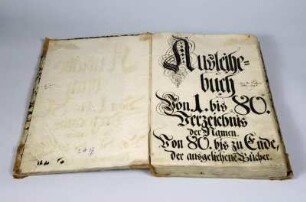 Ausleihe=
buch
Von 1. bis 80.
Verzeichnis
der Namen.
Von 80. bis zu Ende,
der ausgeliehene Bücher.